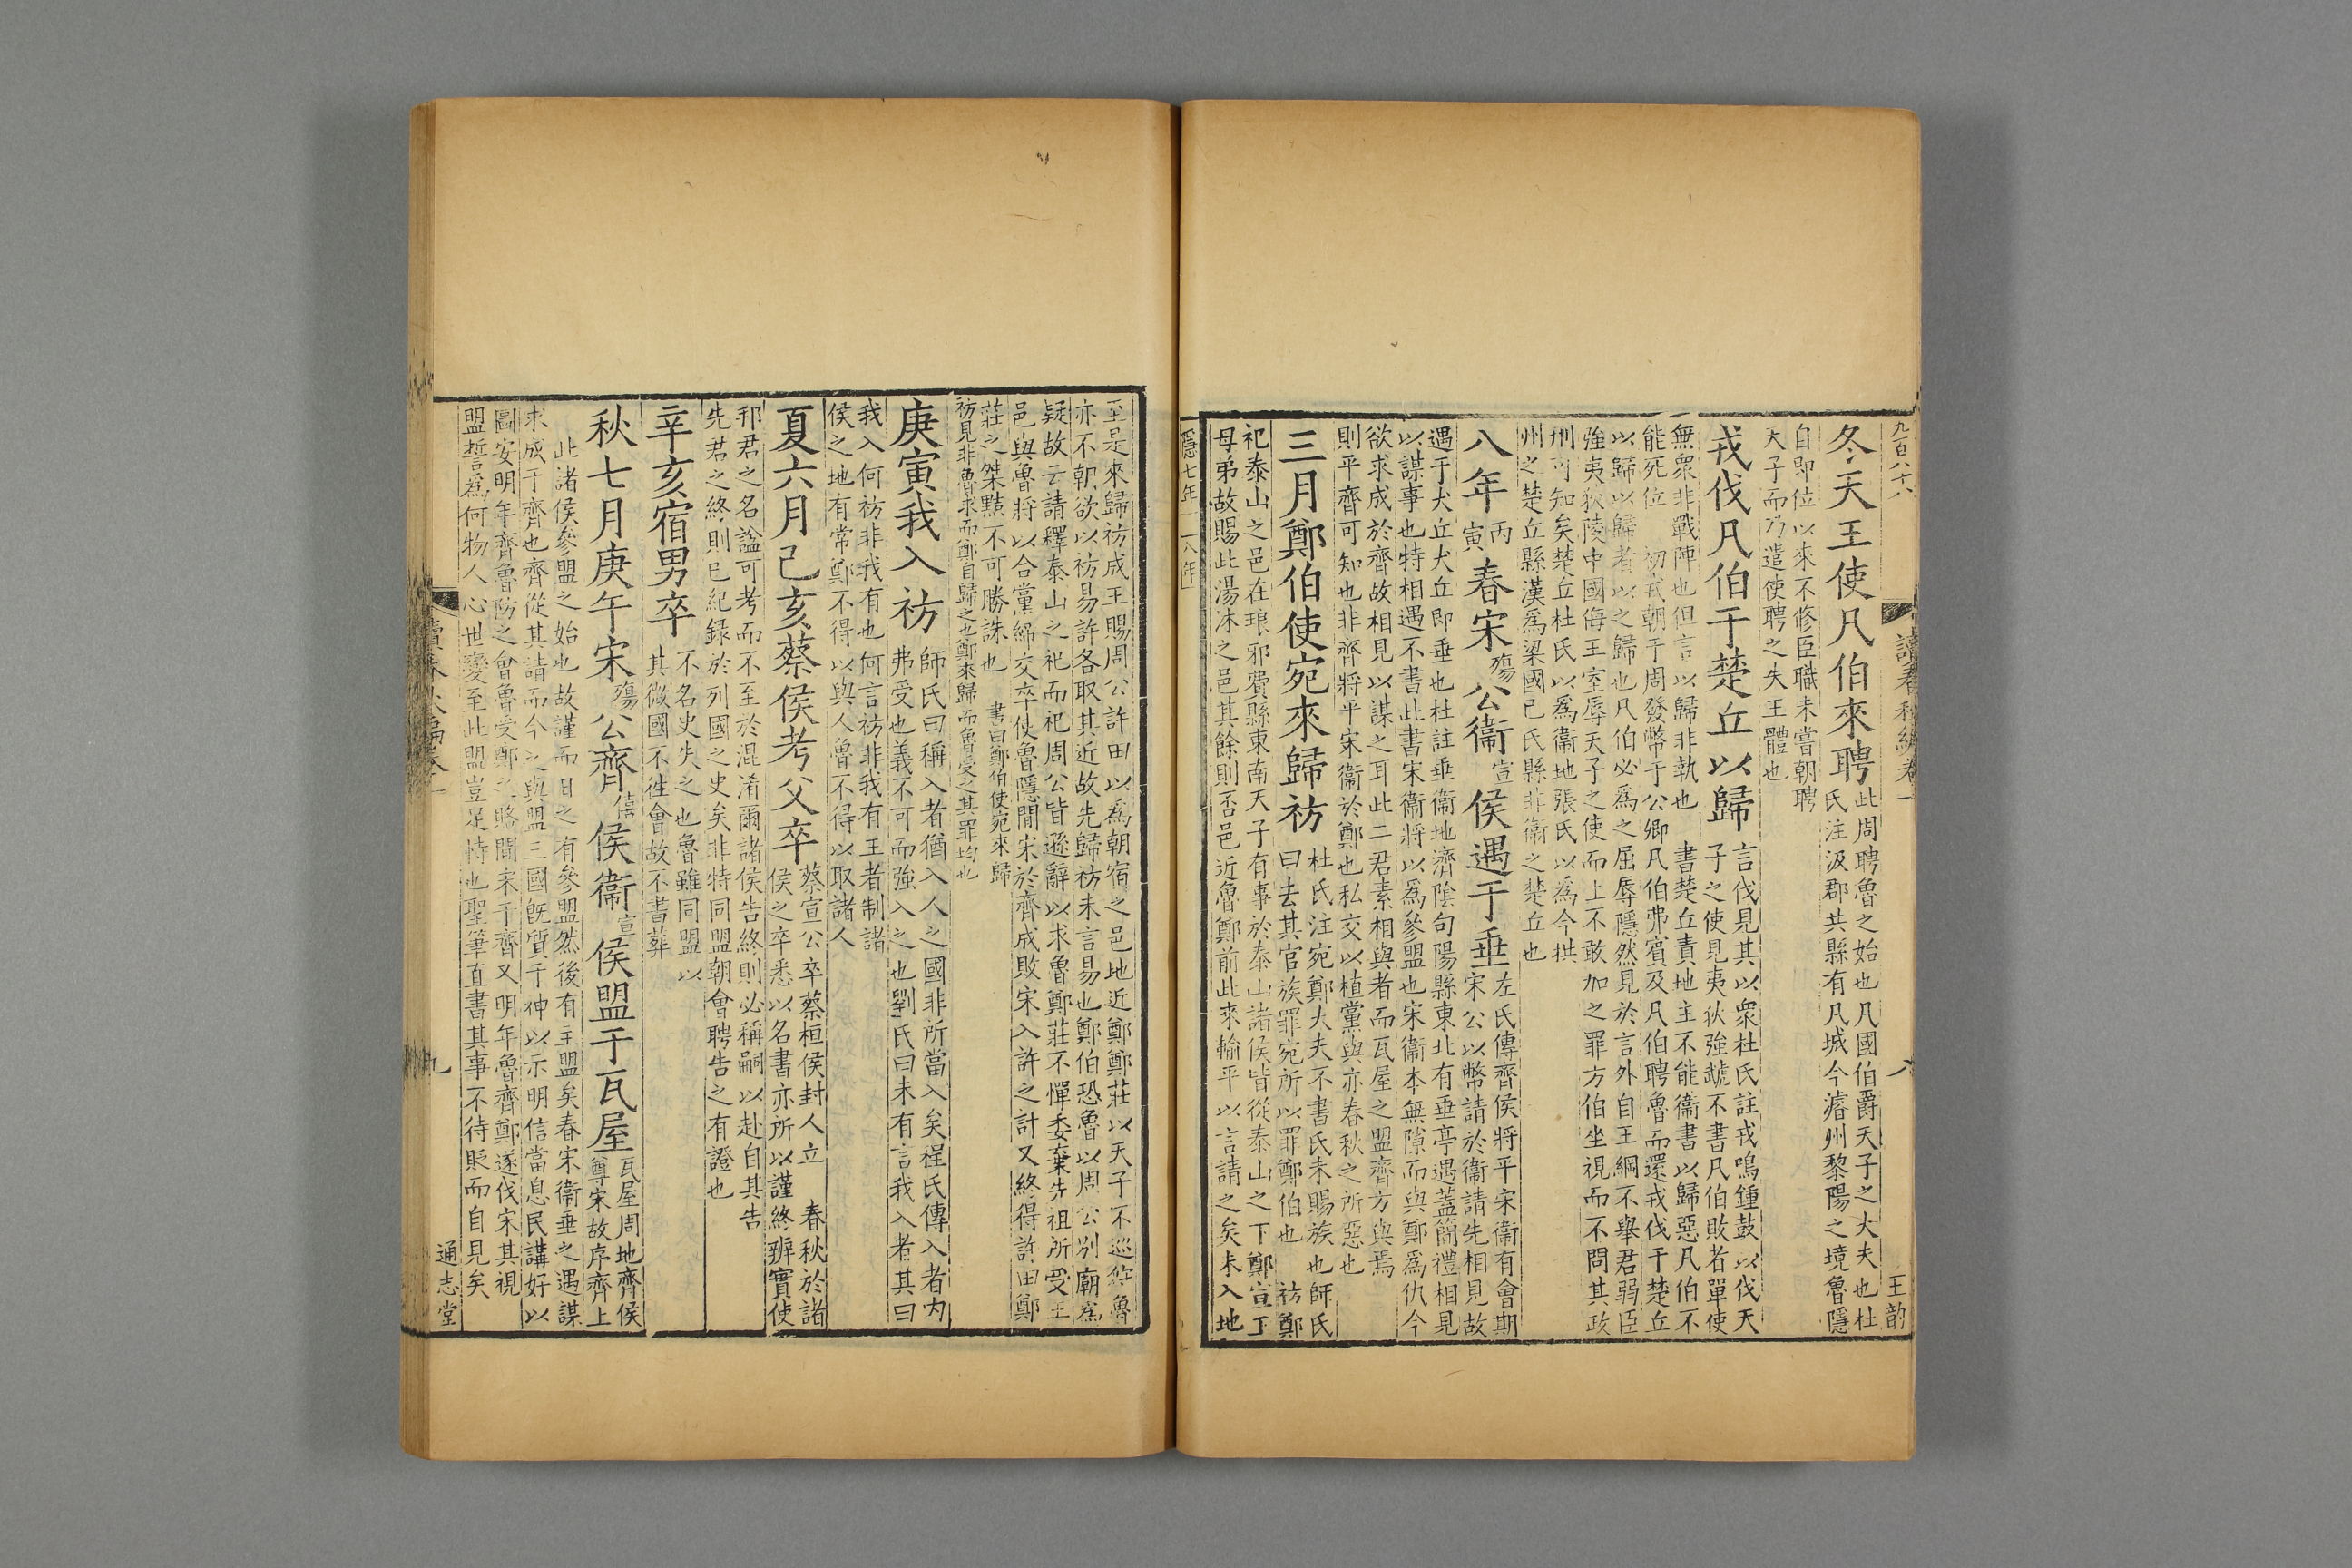 九百八十八
讀春秋編卷一
八
王韵
冬天王使凡伯來聘此周聘魯之始也凡國伯爵天子之大夫也杜
氏注汲郡共縣有凡城今濬州黎陽之境魯隱
自即位以來不修臣職未嘗朝聘
天子而乃遣使聘之失王體也
戎伐凡伯于楚丘以歸言伐見其以衆杜氏註戎鳴鍾鼓以伐天
子之使見夷狄強虣不書凡伯敗者單使
無衆非戰陣也但言以歸非執也 書楚丘責地主不能衞書以歸惡凡伯不
能死位 初戎朝于周發幣于公卿凡伯弗賓及凡伯聘魯而還戎伐于楚丘
以歸以歸者以之歸也凡伯必爲之屈辱隱然見於言外自王綱不舉君弱臣
強夷狄陵中國侮王室辱天子之使而上不敢加之罪方伯坐視而不問其政
刑可知矣楚丘杜氏以爲衞地張氏以爲今拱
州之楚丘縣漢爲梁國已氏縣非衞之楚丘也
八年丙寅春宋殤公衞宣侯遇于垂左氏傳齊侯將平宋衞有會期
宋公以幣請於衞請先相見故
遇于犬丘犬丘即垂也杜註垂衞地濟陰句陽縣東北有垂亭遇蓋簡禮相見
以謀事也特相遇不書此書宋衞將以爲參盟也宋衞本無隙而與鄭爲仇今
欲求成於齊故相見以謀之耳此二君素相與者而瓦屋之盟齊方與焉
則平齊可知也非齊將平宋衞於鄭也私交以植黨與亦春秋之所惡也
三月鄭伯使宛來歸祊杜氏注宛鄭大夫不書氏未賜族也師氏
曰去其官族罪宛所以罪鄭伯也 祊鄭
祀泰山之邑在琅邪費縣東南天子有事於泰山諸侯皆從泰山之下鄭宣王
母弟故賜此湯沐之邑其餘則否邑近魯鄭前此來輸平以言請之矣未入地
隱七年 八年
至是來歸祊成王賜周公許田以爲朝宿之邑地近鄭鄭莊以天子不巡狩魯
亦不朝欲以祊易許各取其近故先歸祊未言易也鄭伯恐魯以周公别廟爲
疑故云請釋泰山之祀而祀周公皆遜辭以求魯鄭莊不憚委棄先祖所受王
邑與魯將以合黨締交卒使魯隱間宋於齊成敗宋入許之計又終得許田鄭
莊之桀黠不可勝誅也 書曰鄭伯使宛來歸
祊見非魯求而鄭自歸之也鄭來歸而魯受之其罪均也
庚寅我入祊師氏曰稱入者猶入人之國非所當入矣程氏傳入者内
弗受也義不可而強入之也劉氏曰未有言我入者其曰
我入何祊非我有也何言祊非我有王者制諸
侯之地有常鄭不得以與人魯不得以取諸人
夏六月己亥蔡侯考父卒蔡宣公卒蔡桓侯封人立 春秋於諸
侯之卒悉以名書亦所以謹終辨實使
邦君之名諡可考而不至於混淆爾諸侯告終則必稱嗣以赴自其告
先君之終則已紀録於列國之史矣非特同盟朝會聘告之有證也
辛亥宿男卒不名史失之也魯雖同盟以
其微國不徃會故不書葬
秋七月庚午宋殤公齊僖侯衞宣侯盟于瓦屋瓦屋周地齊侯
尊宋故序齊上
此諸侯參盟之始也故謹而日之有參盟然後有主盟矣春宋衞垂之遇謀
求成于齊也齊從其請而今之與盟三國旣質于神以示明信當息民講好以
圖安明年齊魯防之會魯受鄭之賂間宋于齊又明年魯齊鄭遂伐宋其視
盟誓爲何物人心世變至此盟豈足恃也聖筆直書其事不待貶而自見矣
九
通志堂